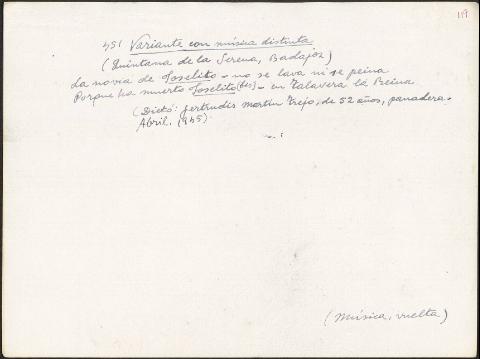 119
451 Variante con música distinta
(Quintana de la Serena, Badajoz)
La novia de Joselito - no se lava ni se peina
Porque ha muerto Joselito (bis) - en Talavera la Reina
(Dictó: Gertrudis Martín Trejo, de 52 años, panadera.
Abril, 1945)
(Música, vuelta)